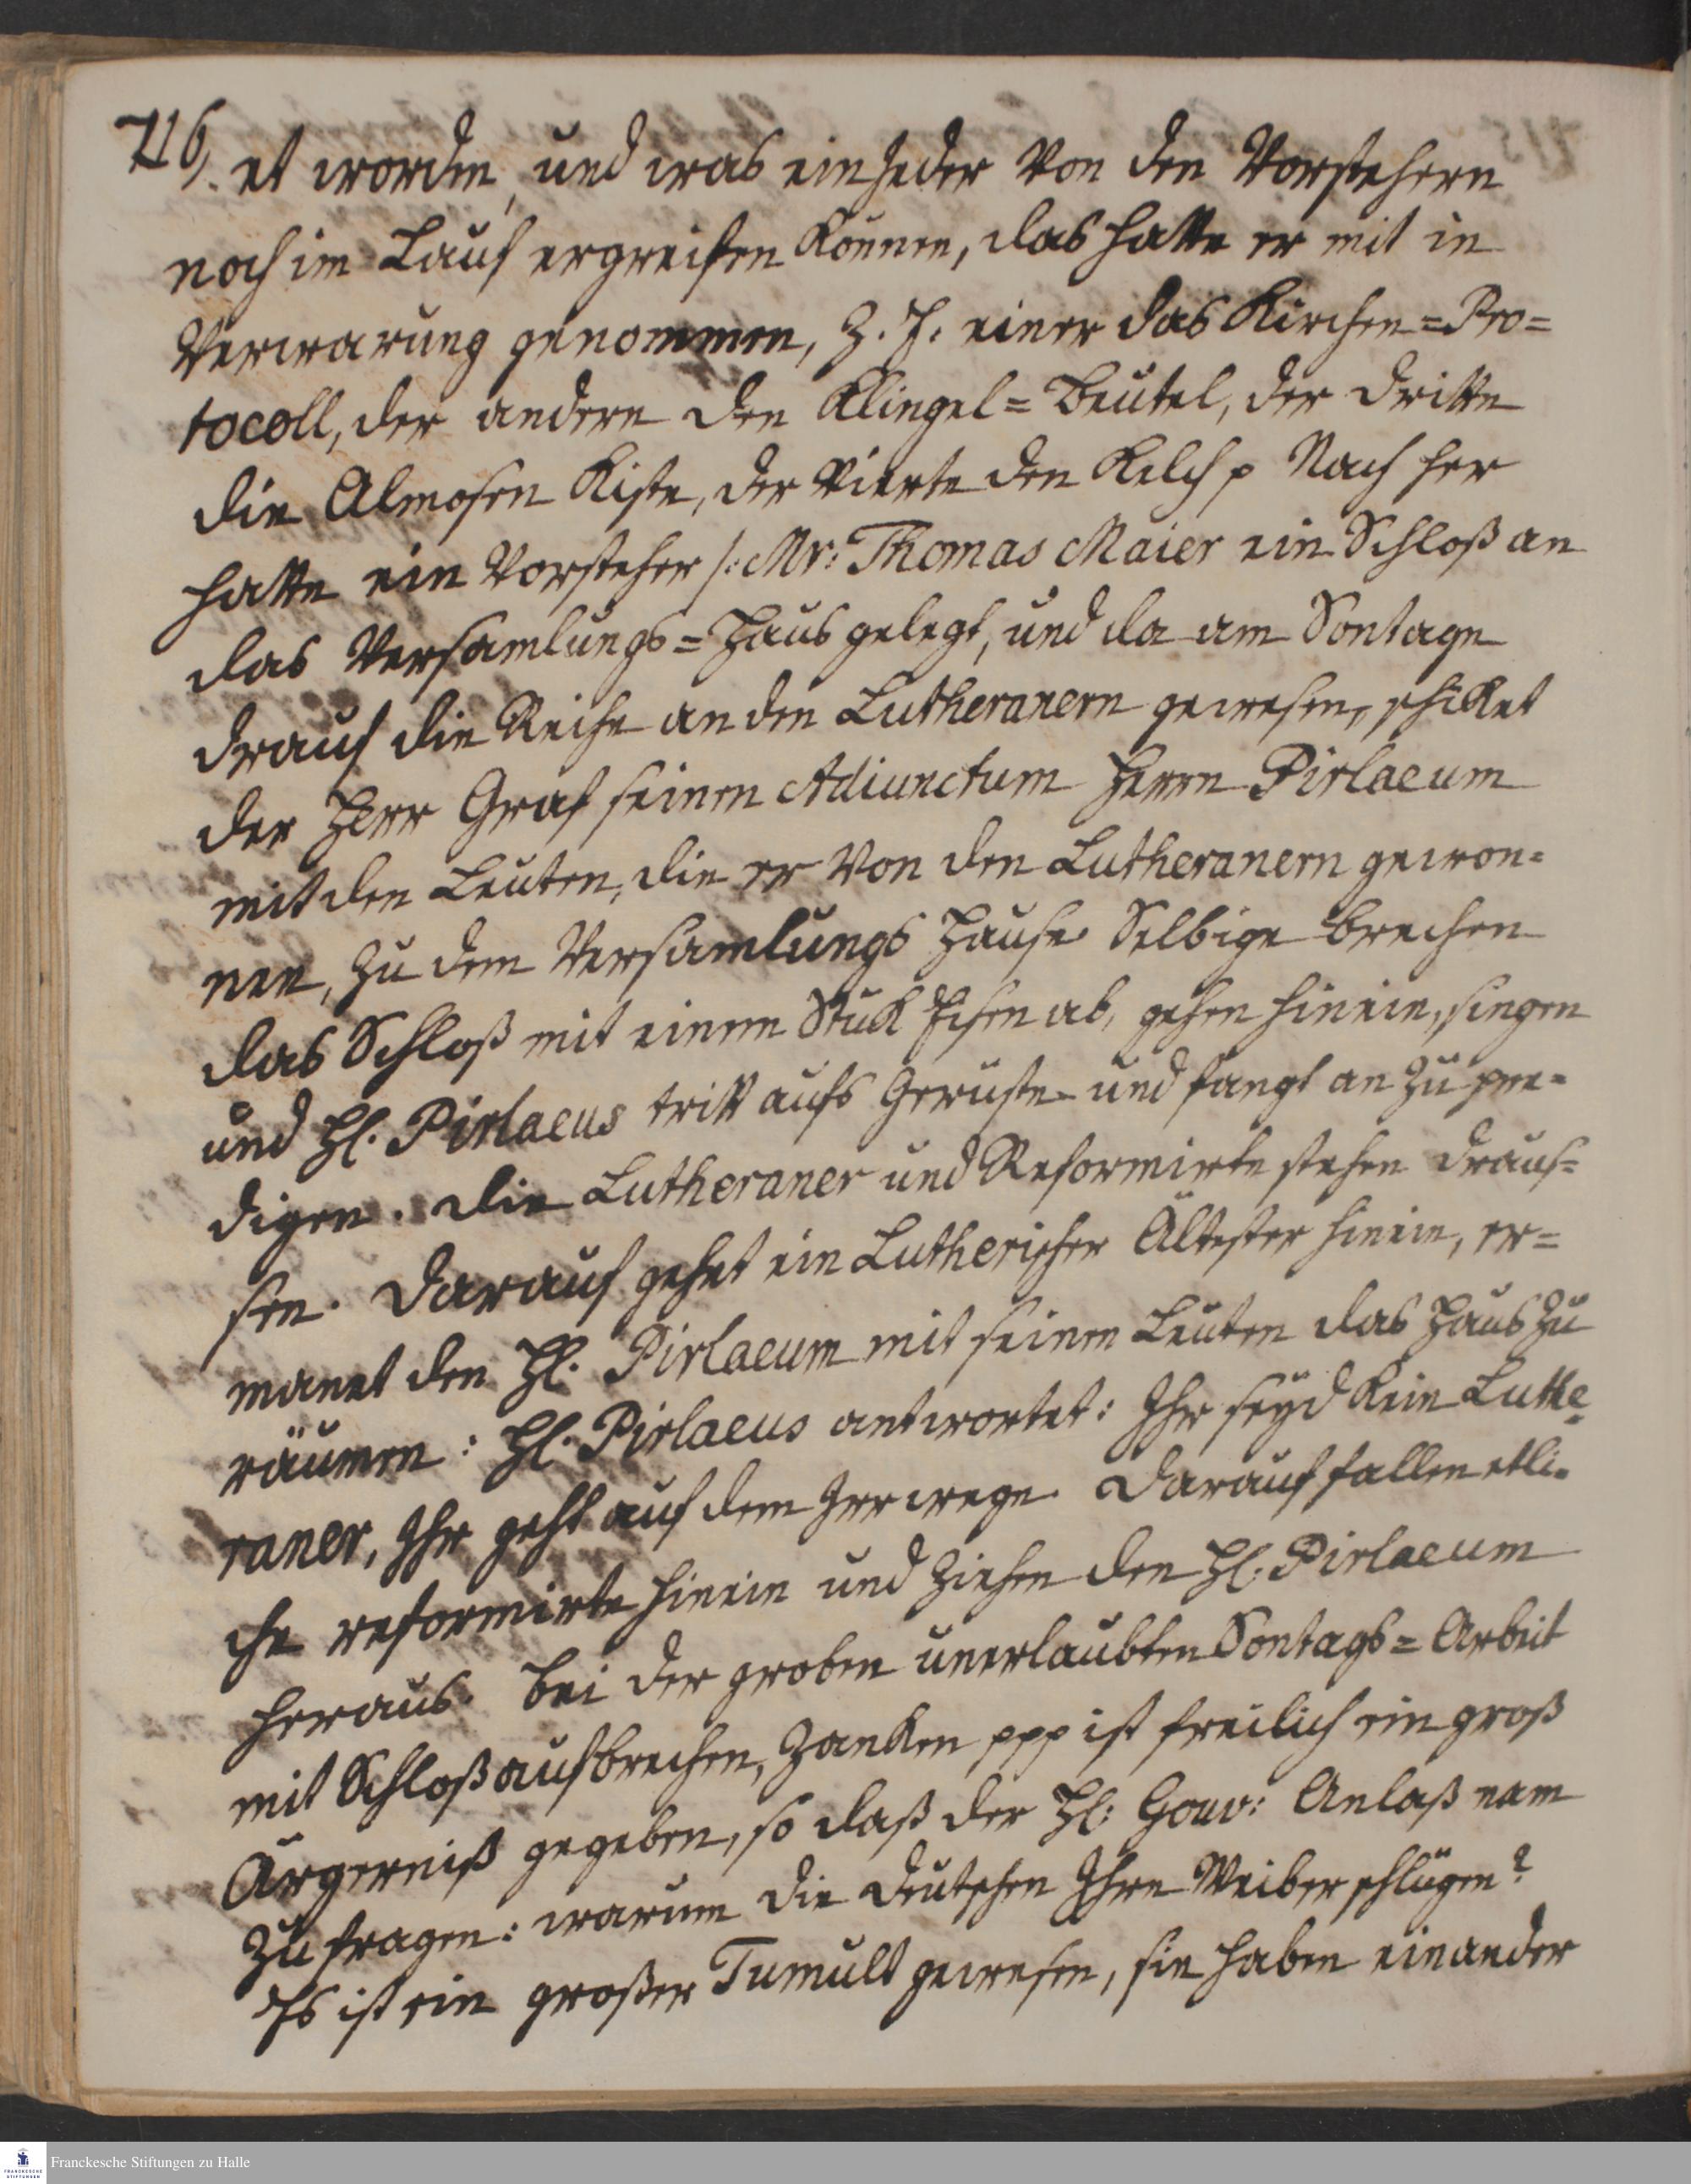 716. et worden, und was ein jeder von den Vorstehern
noch im Lauf ergreifen können, das hatte er mit in
Verwarung genommen, Z. E. einer das Kirchen=Pro=
tocoll, der andere den Klingel=Beutel, der dritte
die Almosen Kiste, der vierte den Kelch p Nach her
hatte ein Vorsteher /: Mr: Thomas Maier ein Schloß an
das Versamlungs=Haus gelegt, und da am Sontage
drauf die Reihe an den Lutheranern gewesen, schiket
der Herr Graf seinen Adiunctum Herrn Pirlaeum
mit den Leuten, die er von den Lutheranern gewon=
nen, zu dem Versamlungs Hause. Selbige brechen
das Schloß mit einem Stük Eisen ab, gehen hinein, singen
und Hl. Pirlaeus tritt aufs Gerüste und fangt an zu pre=
digen. Die Lutheraner und Reformirte stehen draus=
sen. Darauf gehet ein Lutherischer Ältester hinein, er=
manet den Hl. Pirlaeum mit seinen Leuten das Haus zu
räumen: Hl. Pirlaeus antwortet: Ihr seyd kein Luthe=
raner, Ihr geht auf dem Irrwege. Darauf fallen etli=
che reformirte hinein und ziehen den Hl. Pirlaeum
heraus. Bei der groben unerlaubten Sontags=Arbeit
mit Schloß aufbrechen, Zanken ppp ist freilich ein groß
Ärgerniß gegeben, so daß der Hl: Gouv: Anlaß nam
zu fragen: warum die Deutschen Ihre Weiber schlügen?
Es ist ein großer Tumult gewesen, sie haben einander
Franckesche Stiftungen zu Halle